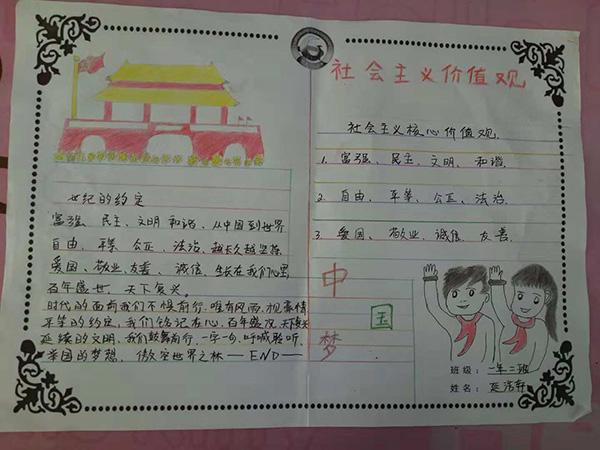 社会主义价值观
社会主义核心价值观.
1. 富强、民主、文明、和谐.
2. 自由、平等、公正、法治.
3. 爱国、敬业、诚信、友善.
世纪的约定
富强、民主、文明 和谐、从中国到世界
自由、平等、公正、法治、越长久越
爱国、敬业、友善、诚信、生在我们心里
百年盛世、天下复兴
时代的面前我们不惧前行,唯有风雨,豪情
平等的约定,我们铭记在心,百年盛况,天下
延续的文明,我们鼓舞前行,一字一句,呼喊聆听.
举国的梦想, 傲立世界之林—END—
中
国
梦
班级: 一年二班
姓名: